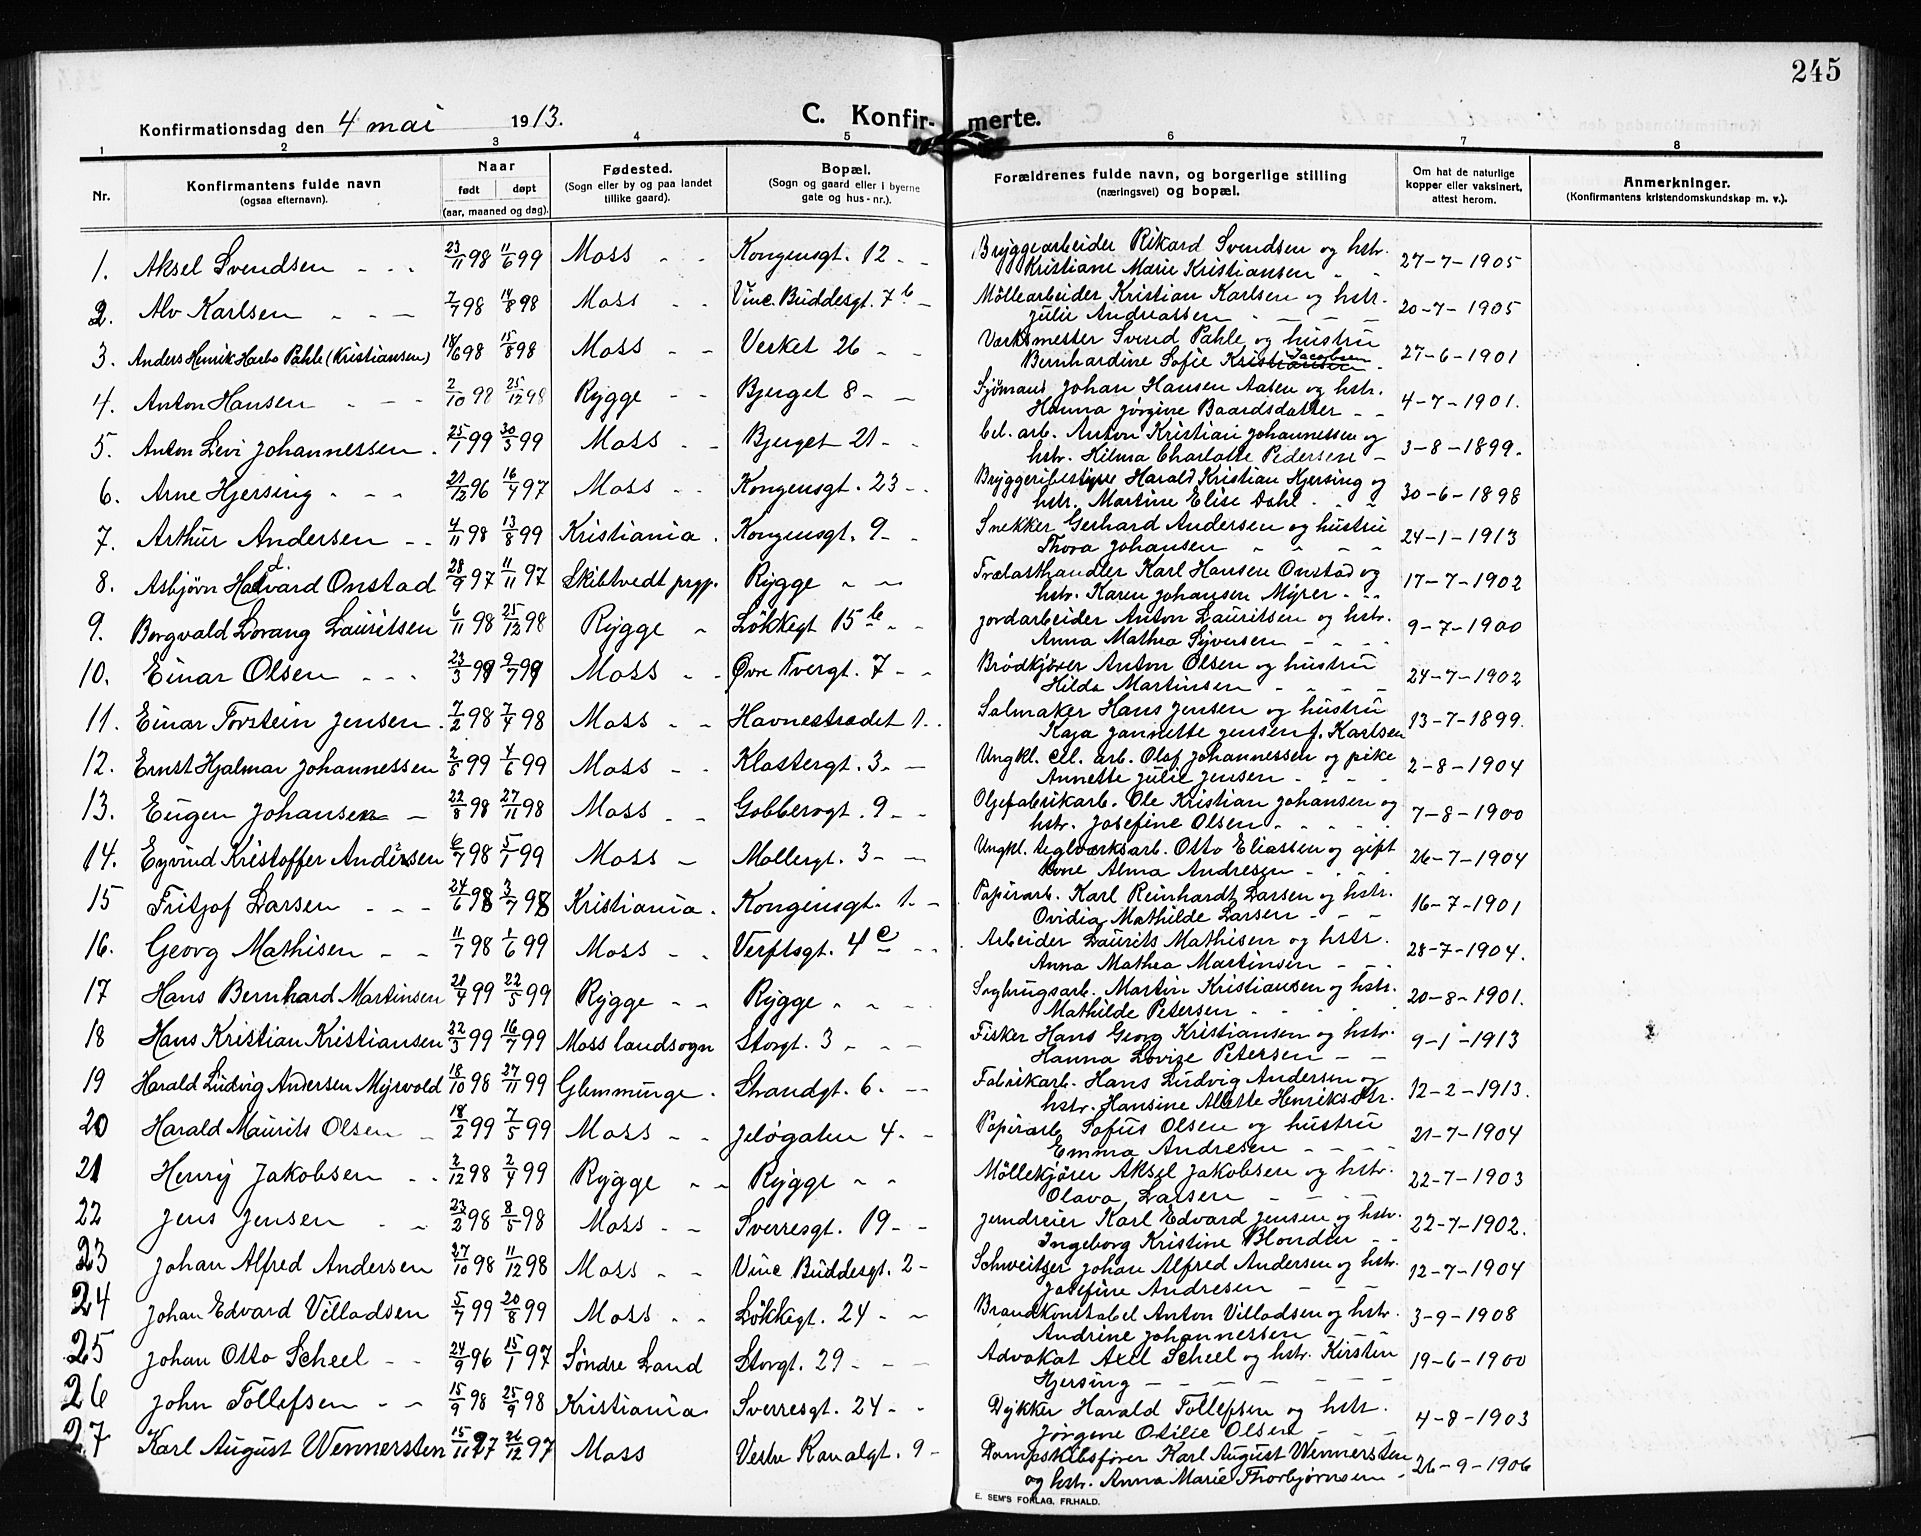 245
Konfirmationsdag den 4 mai 1913.
C. Konfirmerte.
1 2 3 4 5 6 7 8
Nr. Konfirmantens fulde navn (ogsaa efternavn). Naar født døpt (aar, maaned og dag). Fødested. (Sogn eller by og paa landet tillike gaard). Bopæl. (Sogn og gaard eller i byerne gate og hus-nr.). Forældrenes fulde navn, og borgerlige stilling (næringsvei) og bopæl. Om hat de naturlige kopper eller vaksinert, attest herom. Anmerkninger. (Konfirmantens kristendomskundskap m. v.).
1. Aksel Svendsen 23/11 98 11/6 99 Moss Kongensgt. 12 Bryggearbeider Rikard Svendsen og hstr. 27-7-1905
Kristiane Marie Kristiansen
2. Alv Karlsen 7/7 98 14/8 98 Moss Vinc. Buddesgt. 7b Möllearbeider Kristian Karlsen og hstr. 20-7-1905
Julie Andreassen
3. Anders Henrik Harbo Pahle (Kristiansen) 18/6 98 15/8 98 Moss Verket 26 Værksmester Svend Pahle og hustru 27-6-1901
Bernhardine Sofie Kristiansen Jacobsen
4. Anton Hansen 2/10 98 25/12 98 Rygge Bjerget 8 Sjömand Johan Hansen Aasen og hstr. 4-7-1901.
Hanna Jørgine Baardsdatter
5. Anton Levi Johannessen 25/1 99 30/3 99 Moss Bjerget 21 Cel. arb. Anton Kristian Johannessen og 3-8-1899.
hstr. Hilma Charlotte Pedersen
6. Arne Hjersing 21/12 96 16/4 97 Moss Kongensgt. 23 Bryggeribestyrer Harald Kristian Hjersing og 30-6-1898
hstr. Martine Elise Dahl
7. Arthur Andersen 4/11 98 13/8 99 Kristiania Kongensgt. 9 Snekker Gerhard Andersen og hustru 24-1-1913
Thora Johansen
8. Asbjørn Haldvard Onstad 28/9 97 11/11 97 Skibtvedt prgp. Rygge Trælasthandler Karl Hansen Onstad og 17-7-1902
hstr. Karen Johansen Myrer
9. Borgvald Lorang Lauritsen 6/11 98 25/12 98 Rygge Lökkegt 15 b Jordarbeider Anton Lauritsen og hstr. 9-7-1900
Anna Mathea Syversen
10. Einar Olsen 23/3 99 9/7 99 Moss Øvre Tvergt. 7 Brödkjører Anton Olsen og hustru 24-7-1902
Hilda Martinsen
11. Einar Torstein Jensen 7/2 98 7/4 98 Moss Havnestrædet 1 Salmaker Hans Jensen og hustru 13-7-1899.
Kaja Jannette Jensen f. Karlsen
12. Ernst Hjalmar Johannessen 2/5 99 4/6 99 Moss Klostergt. 3 Ungkl. cel. arb. Olaf Johannessen og pike 2-8-1904
Annette Julie Jensen
13. Eugen Johansen 22/8 98 27/11 98 Moss Gobberogt. 9 Oljefabrikarb. Ole Kristian Johansen og 7-8-1900
hstr. Josefine Olsen
14. Eyvind Kristoffer Andersen 6/7 98 5/1 99 Moss Mollergt. 3 Ungkl. teglværksarb. Otto Eliassen og gift 26-7-1904
Kone Alma Andresen
15 Fritjof Larsen 24/6 98 3/7 98 Kristiania Kongensgt. 1 Papirarb. Karl Reinhardt Larsen og hstr. 16-7-1901
Ovidia Mathilde Larsen
16. Georg Mathisen 11/7 98 1/6 99 Moss Verftsgt. 4 c Arbeider Laurits Mathisen og hstr. 28-7-1904.
Anna Mathea Martinsen
17 Hans Bernhard Martinsen 20/4 99 22/5 99 Rygge Rygge Sagbrugsarb. Martin Kristiansen og hstr. 20-8-1901.
Mathilde Petersen
18 Hans Kristian Kristiansen 22/3 99 16/7 99 Moss landsogn Storgt. 3 Fisker Hans Georg Kristiansen og hstr. 9-1-1913
Hanna Lovize Petersen
19 Harald Ludvig Andersen Myrvold 18/10 98 27/11 99 Glemminge Strandgt. 6 Fabrikarb. Hans Ludvig Andersen og 12-2-1913.
hstr. Hansine Alette Henriksdtr.
20 Harald Maurits Olsen 18/2 99 7/5 99 Moss Jeløgaten 4 Papirarb Sofus Olsen og hustru 21-7-1904
Emma Andresen
21 Henry Jakobsen 2/12 98 2/4 99 Rygge Rygge Möllekjører Aksel Jakobsen og hstr. 22-7-1903
Olava Larsen
22 Jens Jensen 23/2 98 8/5 98 Moss Sverresgt. 19 Jerndreier Karl Edvard Jensen og hstr. 22-7-1902.
Ingeborg Kristine Blonden
23 Johan Alfred Andersen 27/10 98 11/12 98 Moss Vinc Buddesgt. 2 Schweitzer Johan Alfred Andersen og hstr. 12-7-1904
Josefine Andresen
24 Johan Edvard Villadsen 5/7 99 20/8 99 Moss Lökkegt. 24 Brandkonstabel Anton Villadsen og hstr. 3-9-1908
Andrine Johannessen
25 Johan Otto Scheel 24/9 96 15/1 97 Søndre Land Storgt. 29 Advokat Axel Scheel og hstr. Kirsten 19-6-1900
Hjersing
26 John Tollefsen 15/9 98 25/9 98 Kristiania Sverresgt. 24 Dykker Harald Tollefsen og hstr. 4-8-1903
Jörgine Otilie Olsen
27 Karl August Wennersten 15/11 97 26/12 97 Moss Vestre Kanalgt. 9 Dampskibsfører Karl August Wennersten 26-9-1906
og hstr. Anna Marie Thorbjørnsen
E. SEM'S FORLAG, FR.HALD.